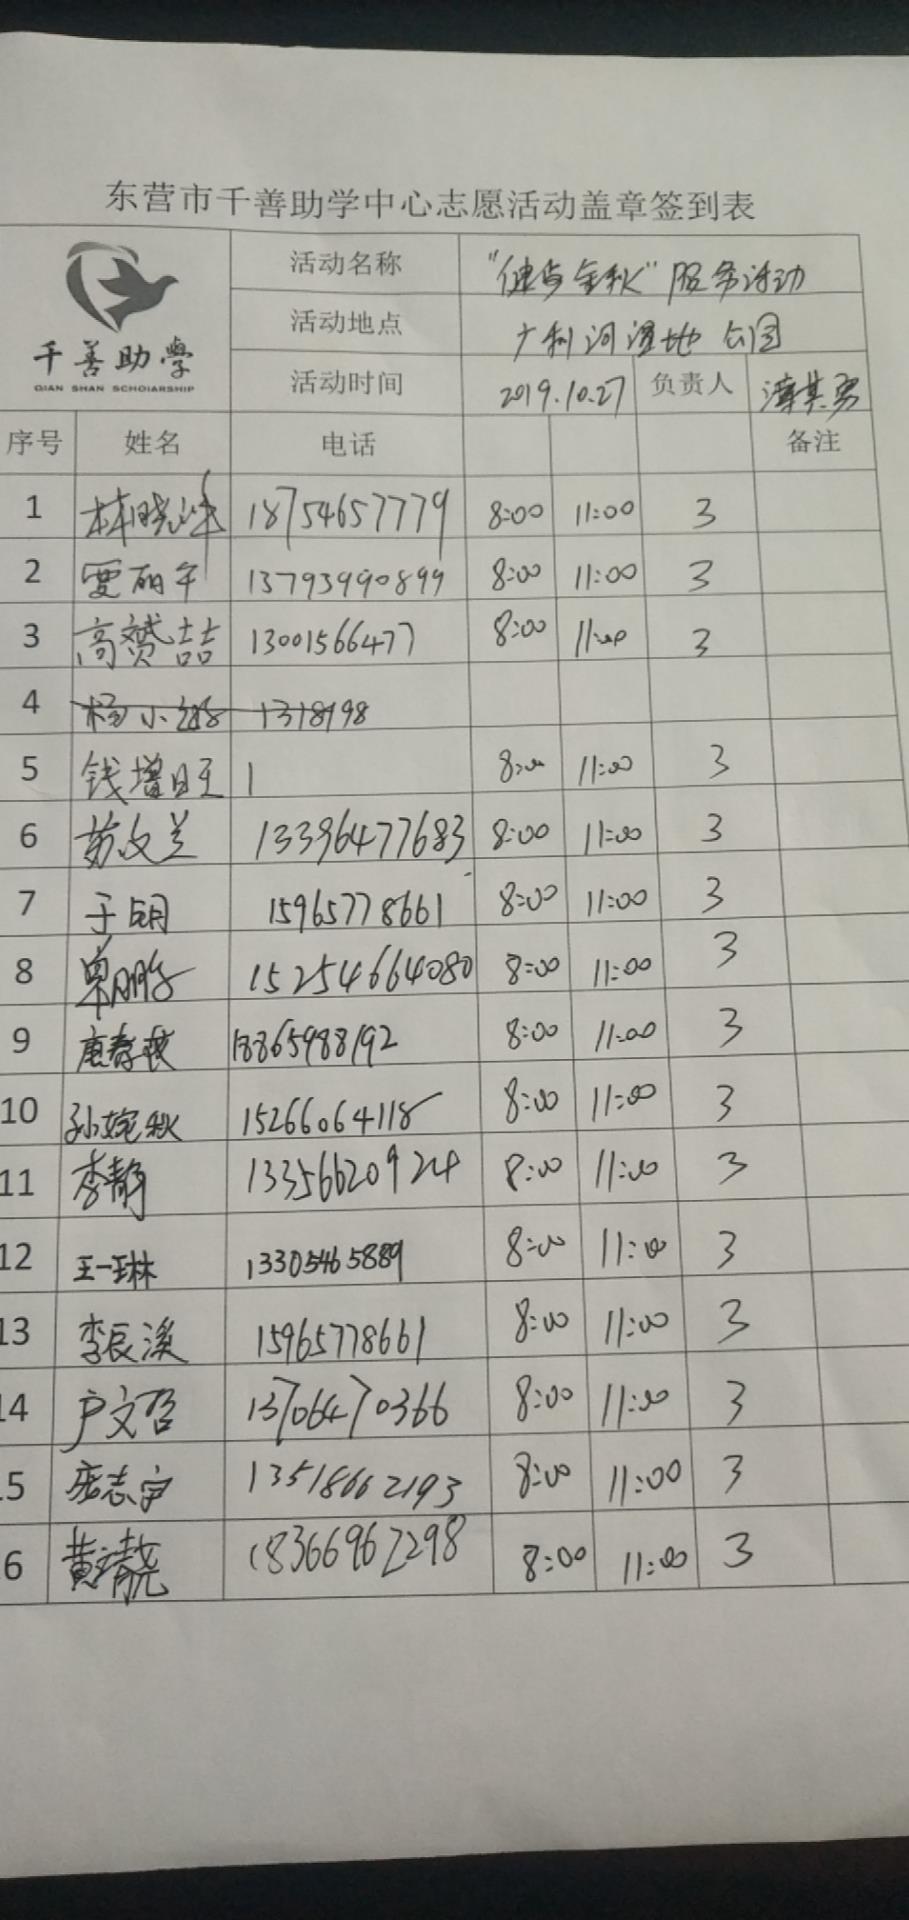 东营市千善助学中心志愿活动盖章签到表
千善助學
QIAN SHAN SCHOlARSHIP
活动名称 "健步金秋"服务活动
活动地点 广利河湿地公园
活动时间 2019.10.27 负责人
序号 姓名 电话 备注
1 林晓 18754657779 8:00 11:00 3
2 贾丽 13793990899 8:00 11:00 3
3 高赟喆 13001566477 8:00 11:00 3
4 杨小 1318198
5 钱增旺 1 8:00 11:00 3
6 苏文兰 13396477683 8:00 11:00 3
7 于明 15965778661 8:00 11:00 3
8 单鹏 15254664080 8:00 11:00 3
9 18865988192 8:00 11:00 3
10 孙婉秋 15266064118 8:00 11:00 3
11 李静 13356620924 8:00 11:00 3
12 王一琳 13305465889 8:00 11:00 3
13 李辰溪 15965778661 8:00 11:00 3
14 卢文君 13706470366 8:00 11:00 3
15 志宇 13518662193 8:00 11:00 3
16 黄 18366962298 8:00 11:00 3